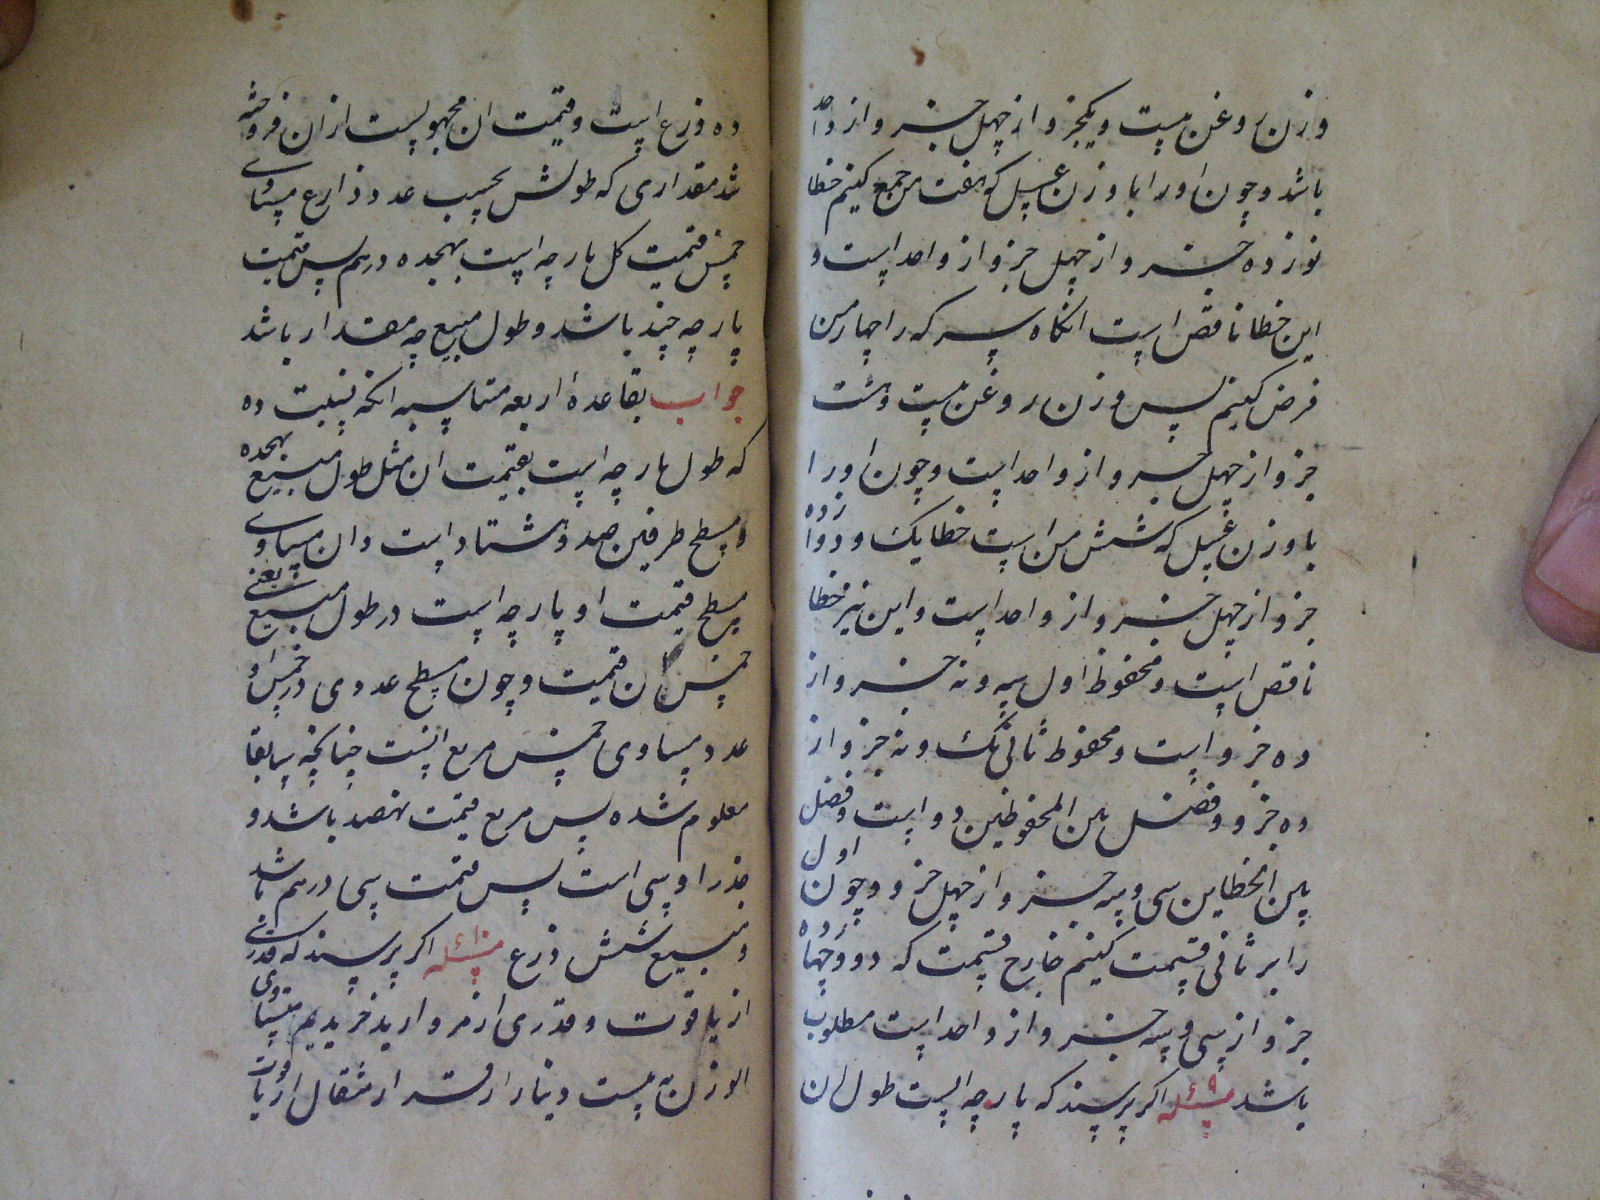 وزن روغن بیست و یکجزو از چهل جزو از واحد
باشد و چون او را با وزن عسل که هفت من جمع کنیم خطا
نوزده جزو از چهل جزو از واحد است و
این خطا ناقص است انکاه سرکه را چهار من
فرض کنیم پس وزن روغن بیست و هشت
جزو از چهل جزو از واحد است و چون او را
با وزن عسل که شش من است خطا یک و دوازده
جزو از چهل جزو از واحد است و این نیز خطا
ناقص است و محفوظ اول سه و نه جزو از
ده جزو است و محفوظ ثانی یک و نه جزو از
ده جزو و فضل بین المحفوظین دو است و فضل
بین الخطاین سی و سه جزو از چهل جزو و چون اول
را بر ثانی قسمت کنیم خارج قسمت که دو و چهارده
جزو از سی و سه جزو از واحد است مطلوب
باشد مسئله ۹ اکر پرسند که پارچه ایست طول ان
ده ذرع است و قیمت ان مجهولست از ان فروخته
شد مقداری که طولش بحسب عدد ذارع مساوی
خمس قیمت کل پارچه است بهجده درهم پس قیمت
پارچه چند باشد و طول مبیع چه مقدار باشد
جواب بقاعدهٔ اربعه متناسبه انکه نسبت ده
که طول پارچه است بقیمت ان مثل طول مبیع بهجده
و مسطح طرفین صد و هشتاد است و ان مساوی
مسطح قیمت او پارچه است در طول مبیع یعنی
خمس ان قیمت و چون مسطح عددی در خمس او
عدد مساوی خمس مربع انست چنانچه سابقا
معلوم شده پس مربع قیمت نهصد باشد و
جذر او سی است پس قیمت سی درهم باشد
و مبیع شش ذرع مسئله ۱۰ اکر پرسند که قدری
از یاقوت و قدری از مروارید خریدیم متساوی
الوزن به بیست دینار از قرار مثقال از یاقوت